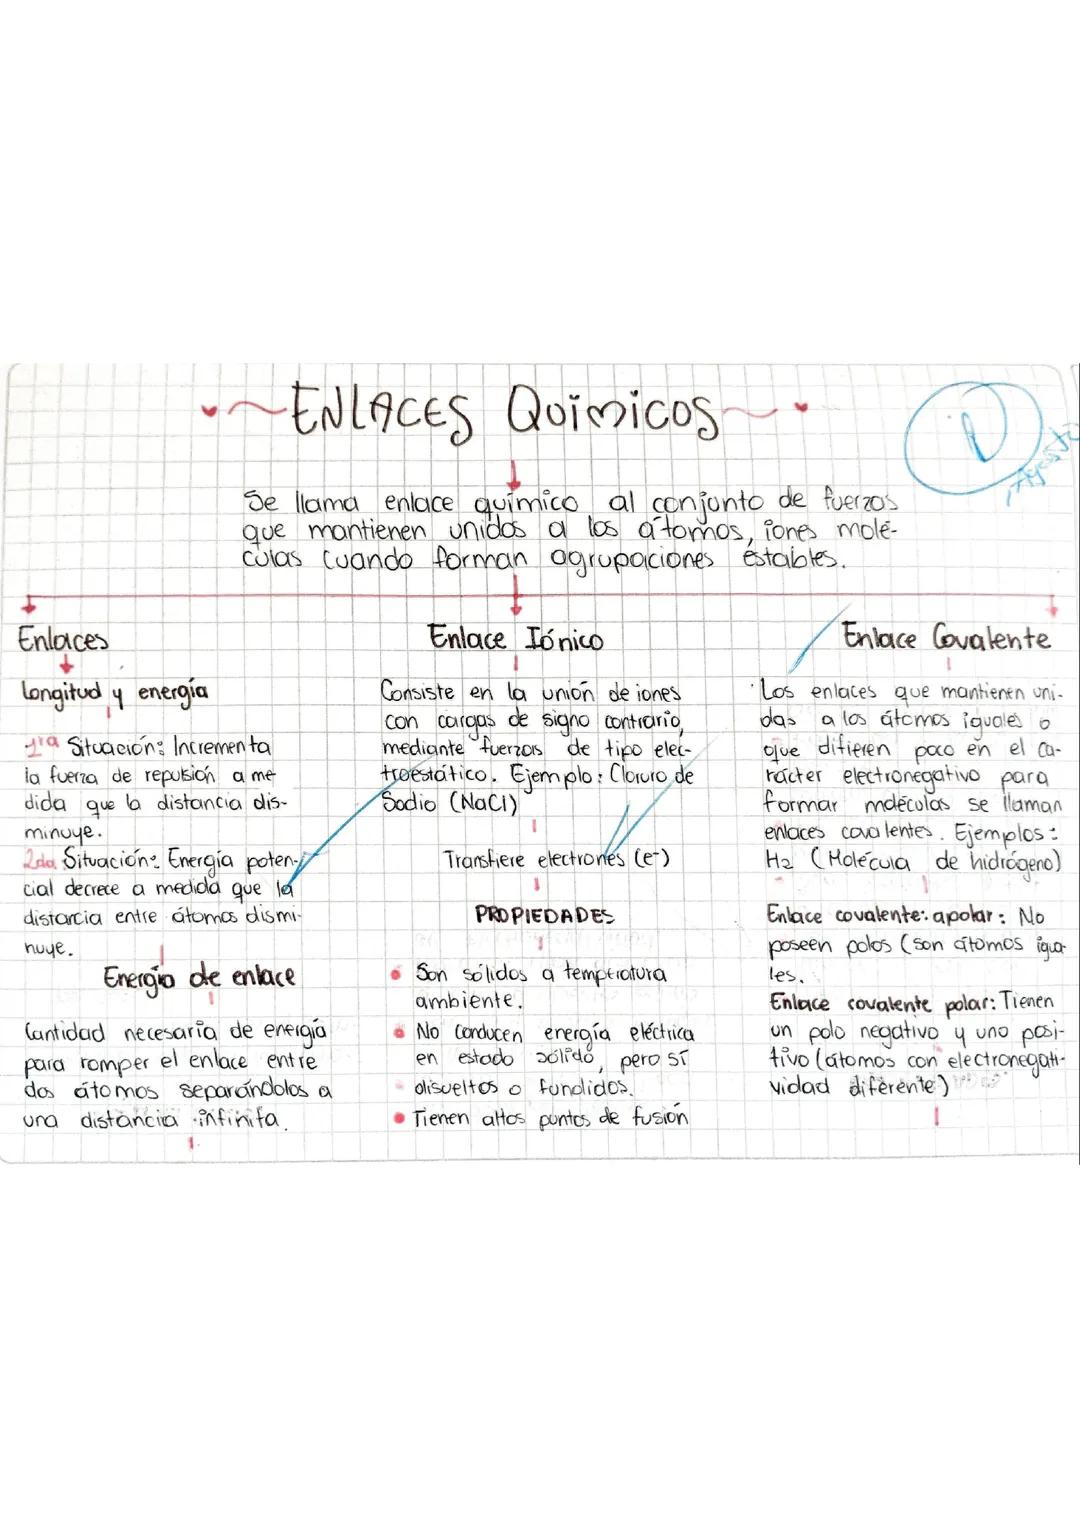 ENLACES QUíMICOS
Se llama enlace químico al conjunto de fuerzas
que mantienen unidos a los átomos, iones molé-
culas cuando forman agrupaciones estables.
Enlaces
Longitud y energía
1ra Situación: Incrementa
la fuerza de repulsión a me
dida que la distancia dis-
minuye.
2da Situación: Energía poten-
cial decrece a medida que la
distancia entre átomos dismi-
nuye.
Energía de enlace
Cantidad necesaria de energía
para romper el enlace entre
dos átomos separándolos a
una distancia infinita.
Enlace Iónico
Consiste en la unión de iones
con cargas de signo contrario,
mediante fuerzas de tipo elec-
troestático. Ejemplo: Cloruro de
Sodio (NaCl)
Transfiere electrones (e-)
PROPIEDADES
Son sólidos a temperatura
ambiente.
No conducen energía eléctrica
en estado sólido, pero sí
disueltos o fundidos.
Tienen altos puntos de fusión
Enlace Covalente
Los enlaces que mantienen uni-
das a los átomos iguales o
que difieren poco en el ca-
rácter electronegativo para
formar moléculas se llaman
enlaces covalentes. Ejemplos:
H2 (Molécula de hidrógeno)
Enlace covalente: apolar: No
poseen polos (son átomos igua-
les.
Enlace covalente polar: Tienen
un polo negativo y uno posi-
tivo (átomos con electronegati-
vidad diferente)